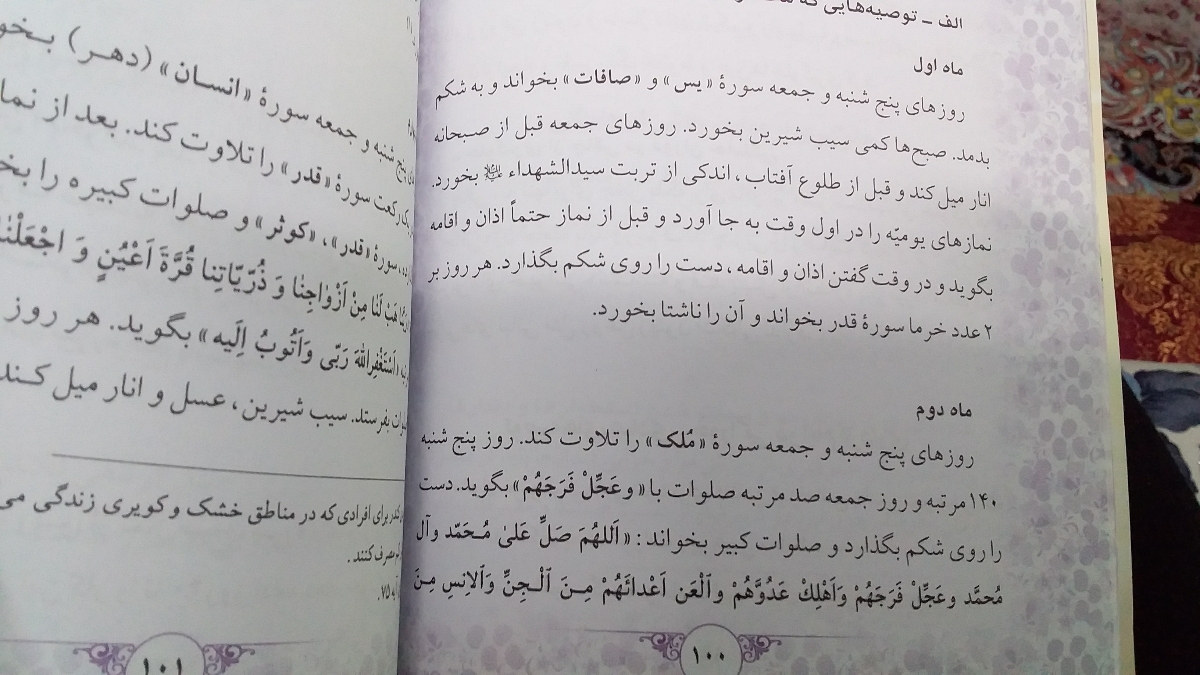 الف ـ توصیه‌هایی که
ماه اول
روزهای پنج شنبه و جمعه سورهٔ «یس» و «صافات» بخواند و به شکم
بدمد. صبح‌ها کمی سیب شیرین بخورد. روزهای جمعه قبل از صبحانه
انار میل کند و قبل از طلوع آفتاب، اندکی از تربت سیدالشهداء بخورد.
نمازهای یومیّه را در اول وقت به جا آورد و قبل از نماز حتماً اذان و اقامه
بگوید و در وقت گفتن اذان و اقامه، دست را روی شکم بگذارد. هر روز بر
۲ عدد خرما سورهٔ قدر بخواند و آن را ناشتا بخورد.
ماه دوم
روزهای پنج شنبه و جمعه سورهٔ «مُلک» را تلاوت کند. روز پنج شنبه
۱۴۰ مرتبه و روز جمعه صد مرتبه صلوات با «وعَجِّلْ فَرَجَهُمْ» بگوید. دست
را روی شکم بگذارد و صلوات کبیر بخواند: «اَللهُمَ صَلِّ عَلیٰ مُحَمّد وآل
مُحمَّد وعَجِّلْ فَرَجَهُمْ وَاَهْلِكْ عَدُوَّهُمْ واَلْعَن اَعْدائَهُمْ مِنَ اَلْجِنِّ وَاَلاِنسِ مِنَ
۱۰۰
پنج شنبه و جمعه سورهٔ «انسان» (دهر)
رکعت سورهٔ «قدر» را تلاوت کند. بعد از
سورهٔ «قدر»، «کوثر» و صلوات کبیره را
هَبْ لَنٰا مِنْ اَزْوٰاجِنٰا وَ ذُرّیّاتِنا قُرَّةَ اَعْیُنٍ وَ اجْعَلْنٰا
«اَستَغْفِرُاللهَ رَبّی وَاَتُوبُ اِلَیه» بگوید. هر روز
بفرستد. سیب شیرین، عسل و انار میل کند
برای افرادی که در مناطق خشک و کویری زندگی می
مصرف کنند.
۷۵.
۱۰۱